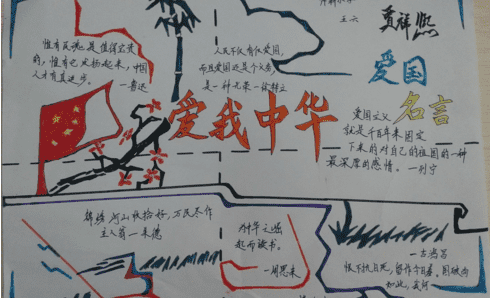 王六
黄祥熙
惟有民魂是值得宝贵
的,惟有它发扬起来,中国
人才有真进步。
—鲁迅
人民不仅有权爱国,
而且爱国还是个义务,
是一种光荣—徐特立
爱国
名言
爱我中华
爱国主义
就是千百年来固定
下来的对自己的祖国的一种
最深厚的感情。—列宁
锦绣河山收拾好,万民尽作
主人翁—朱德
为中华之崛
起而读书。
—周恩来
—古诗
恨下
如此